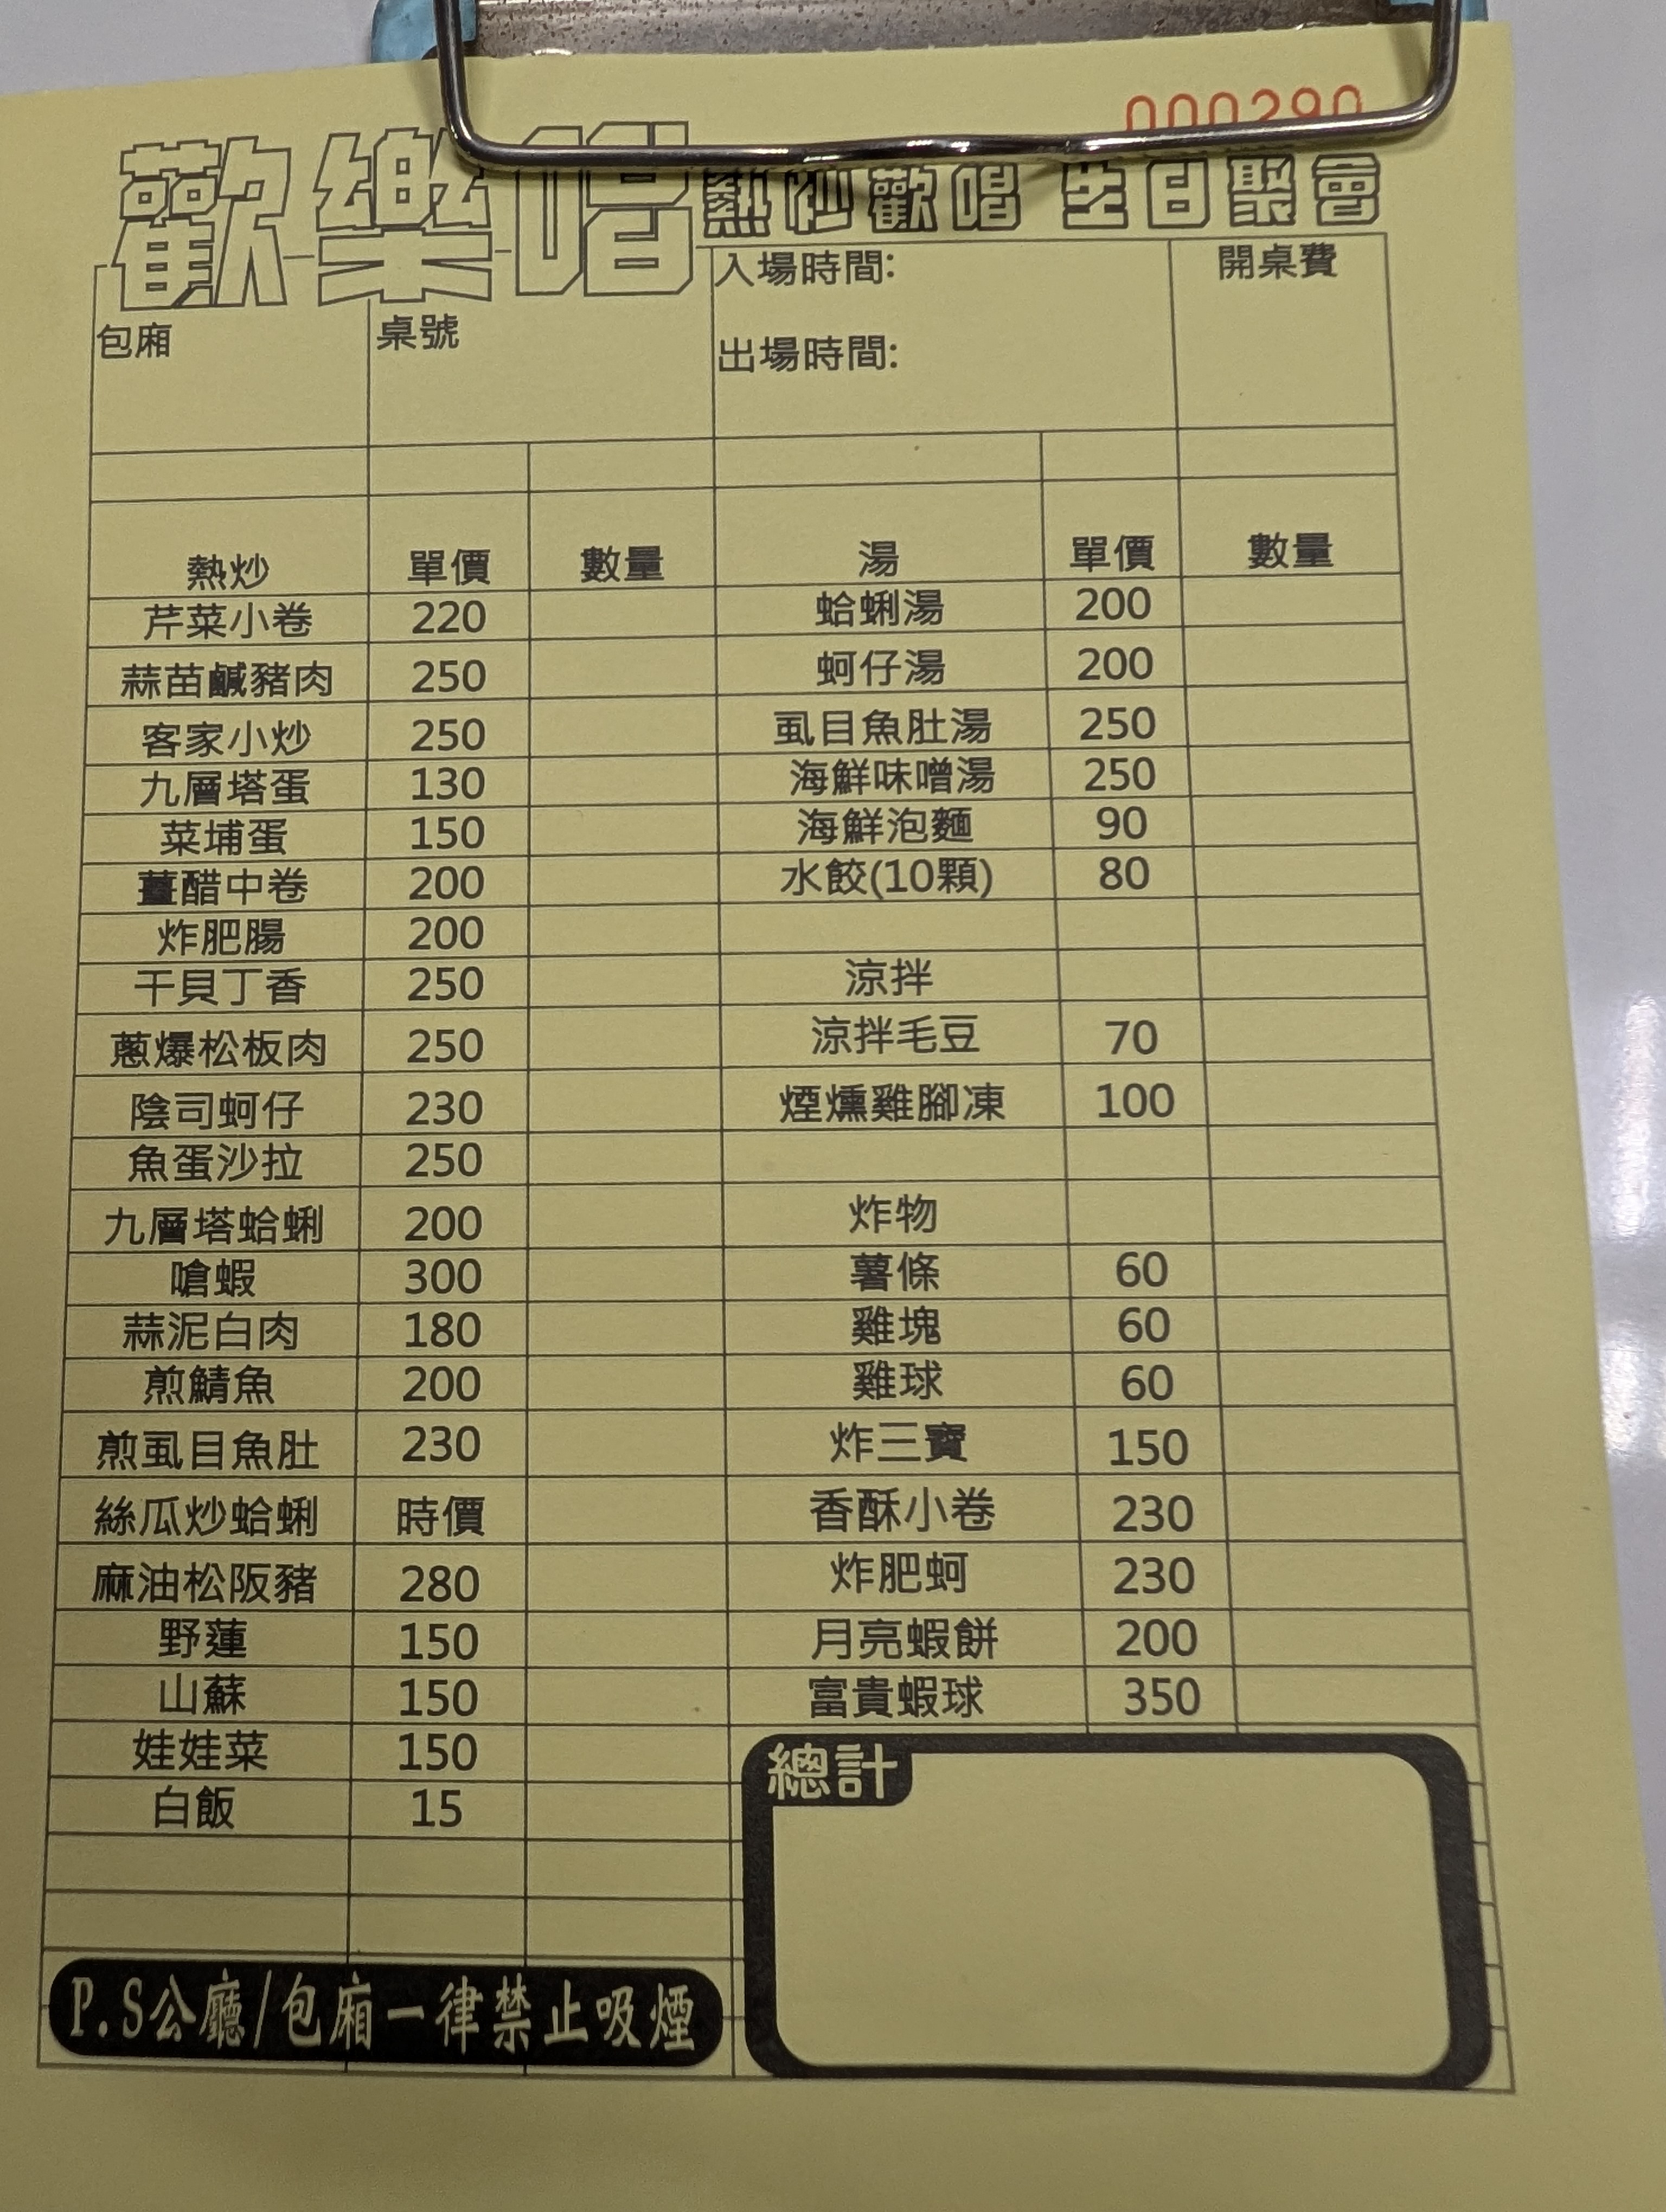 000290
歡樂唱
熱炒歡唱 生日聚會
包廂 桌號 入場時間: 開桌費
出場時間:
熱炒 單價 數量 湯 單價 數量
芹菜小卷 220 蛤蜊湯 200
蒜苗鹹豬肉 250 蚵仔湯 200
客家小炒 250 虱目魚肚湯 250
九層塔蛋 130 海鮮味噌湯 250
菜埔蛋 150 海鮮泡麵 90
薑醋中卷 200 水餃(10顆) 80
炸肥腸 200
干貝丁香 250 涼拌
蔥爆松板肉 250 涼拌毛豆 70
陰司蚵仔 230 煙燻雞腳凍 100
魚蛋沙拉 250
九層塔蛤蜊 200 炸物
嗆蝦 300 薯條 60
蒜泥白肉 180 雞塊 60
煎鯖魚 200 雞球 60
煎虱目魚肚 230 炸三寶 150
絲瓜炒蛤蜊 時價 香酥小卷 230
麻油松阪豬 280 炸肥蚵 230
野蓮 150 月亮蝦餅 200
山蘇 150 富貴蝦球 350
娃娃菜 150 總計
白飯 15
P.S公廳/包廂一律禁止吸煙